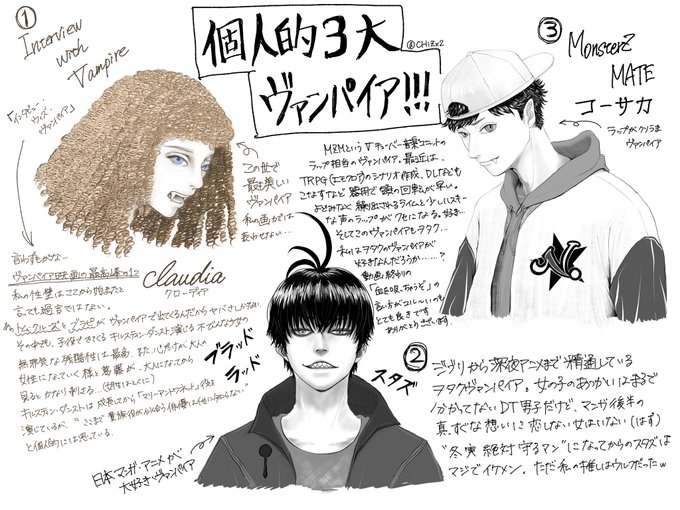 個人的3大
@CHiZx2
ヴァンパイア!!!
①
Interview
with
Vampire
「インタビュー・
ウィズ・
ヴァンパイア」
この世で
最も美しい
ヴァンパイア
私の画力では
表わせない…
言わずもがな…
ヴァンパイア映画の最高峰の1つ
私の性壁はここから始まったと
言っても過言ではない。
トム・クルーズとブラピがヴァンパイアで出てくるんだからヤバさしかない。
その中でも、子役できてくるキルスティン・ダンスト演じる
無邪気な残酷性は最高。また、心だけが大人の
女性になっていく様と葛藤が、大人になってから
見るとかなり刺さる…
キルスティン・ダンストは成長してから「マリー・アントワネット」役を
演じているが、"ここまで貴族役が似合う俳優は他に知らない"
と個人的には思っている。
claudia
クローディア
③
MonsterZ
MATE
コーサカ
ラップがクソうま
ヴァンパイア
MZMというVチューバー音楽ユニットの
ラップ担当のヴァンパイア。最近は、
TRPG(エモクロア)のシナリオ作成、DLなども
こなすなど器用で頭の回転が早い。
よどみなく繰り出されるライムと少しハスキー
な声のラップがクセになる。好き…
そしてこのヴァンパイアもヲタク…
私はヲタクのヴァンパイアが
好きなんだろうか……?
動画終わりの
「血を吸っちゃうぞ」の
言い方がコールいいのも
とても良きです
ありがとうございます.
ブラッド
ラッド
スタズ
日本マンガ・アニメが
大好きヴァンパイア
②
ジブリから深夜アニメまで精通している
ヲタクヴァンパイア。女の子のあつかいはまるで
分かってないDT男子だけど、マンガ後半の
真っすぐな想いに恋しない女はいない(はず)
"冬実絶対守るマン"になってからのスタズは
マジでイケメン。ただ私の推しはウルフだったw